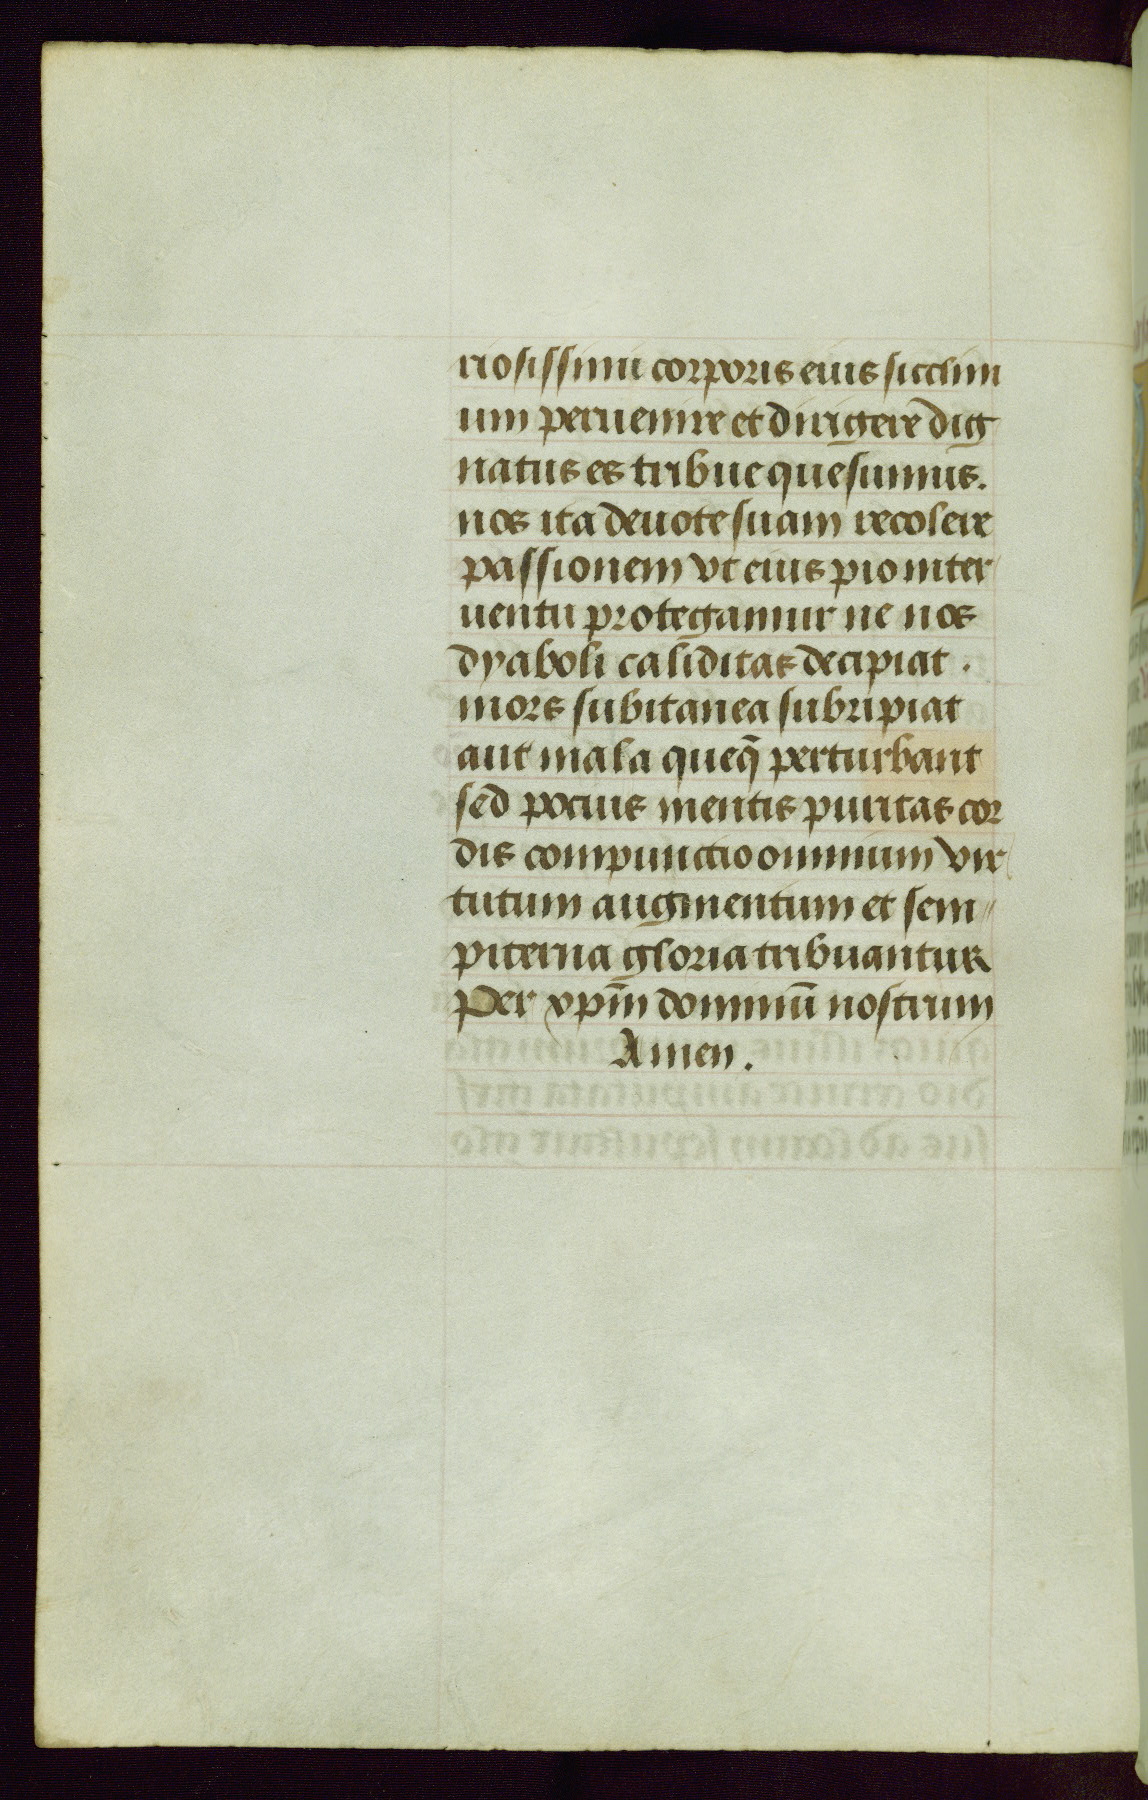 riosissimi corporis eius sicclim
um peruenire et dirigere dig
natus es tribue quesumus.
nos ita deuote suam recolere
passionem vt eius pio inter
uentu protegamur ne nos
dyaboli caliditas decipiat .
mors subitanea subripiat
aut mala queq̃ perturbant
sed pocius mentis puritas cor
dis compunctio omnium vir
tutum augmentum et sem
piterna gloria tribuantur
Per xp̃m dominũ nostrum
Amen.